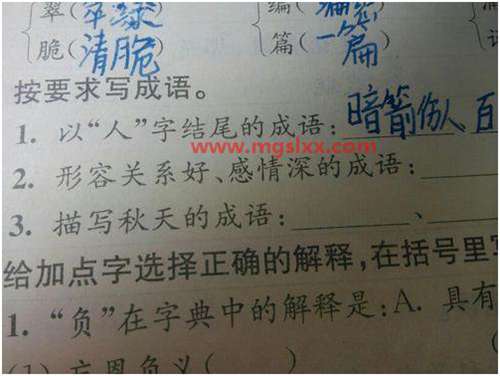 翠(翠绿) 编(
脆(清脆) 篇(一篇)
按要求写成语。
1. 以“人”字结尾的成语:暗箭伤人 百
www.mgslxx.com
2. 形容关系好、感情深的成语:
3. 描写秋天的成语: 、
给加点字选择正确的解释,在括号里写
1. “负”在字典中的解释是:A. 具有
(1) 忘恩负义( )